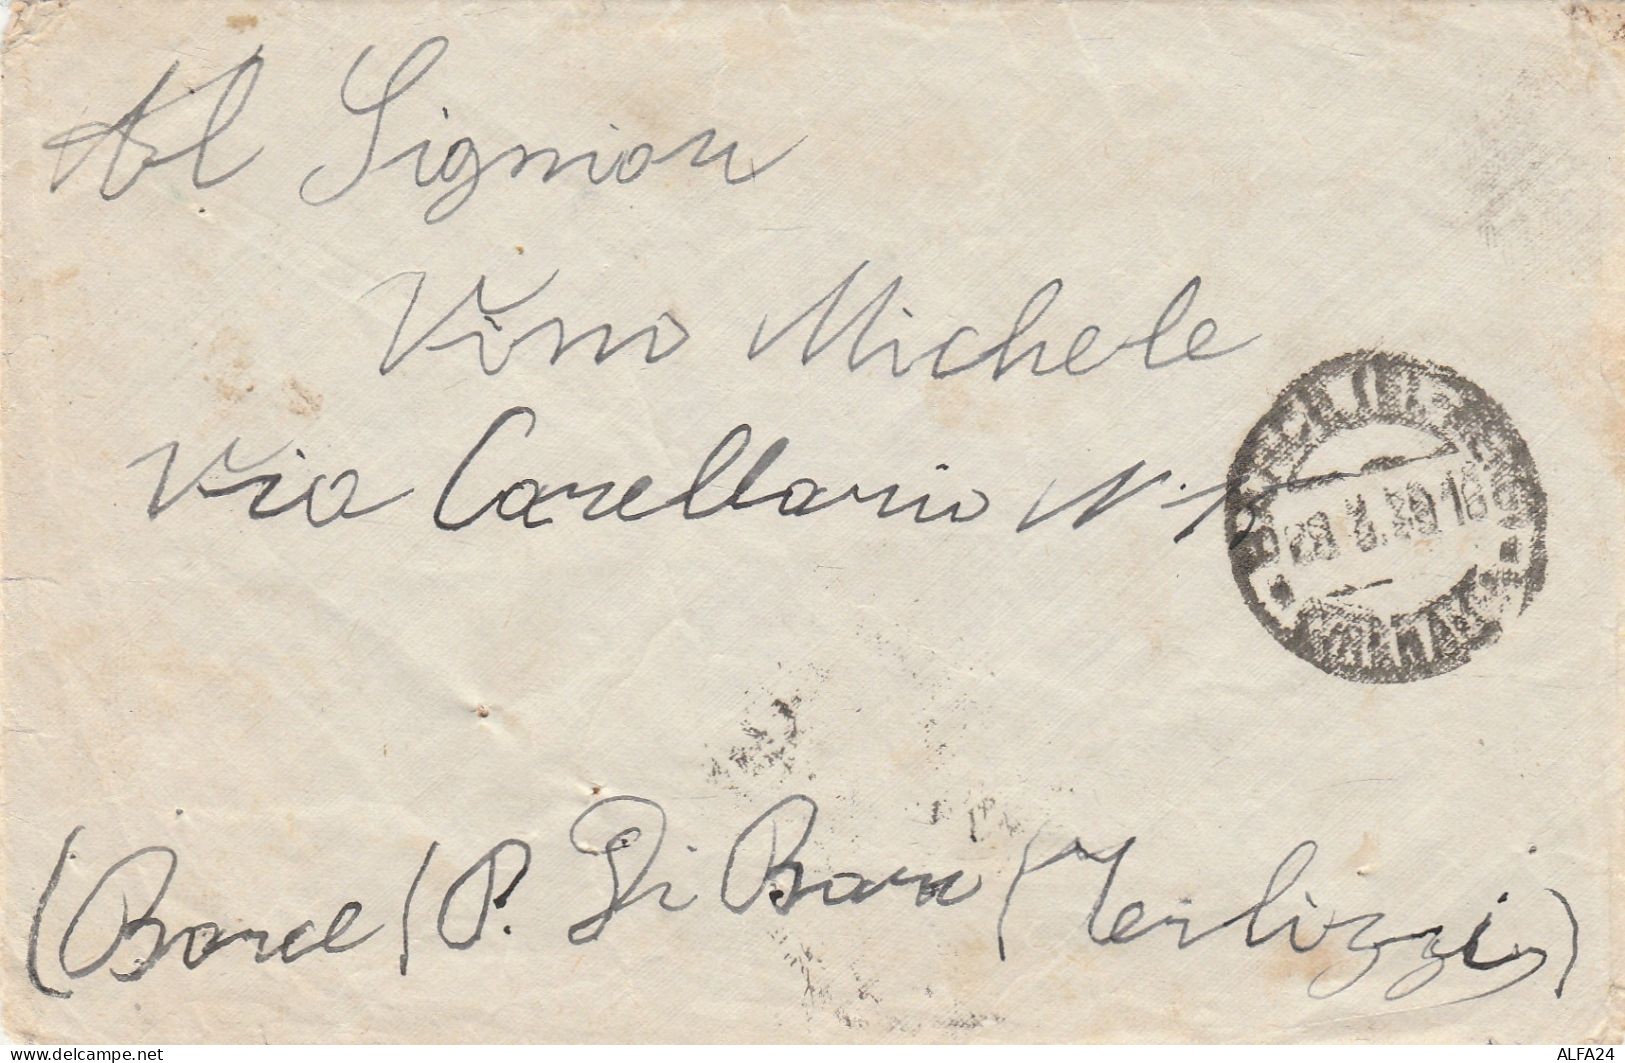 Al Signior
Vino Michele
Via Carellario N.
(Barce) P. Di Bari (Terlizzi)
www.delcampe.net
ALFA24